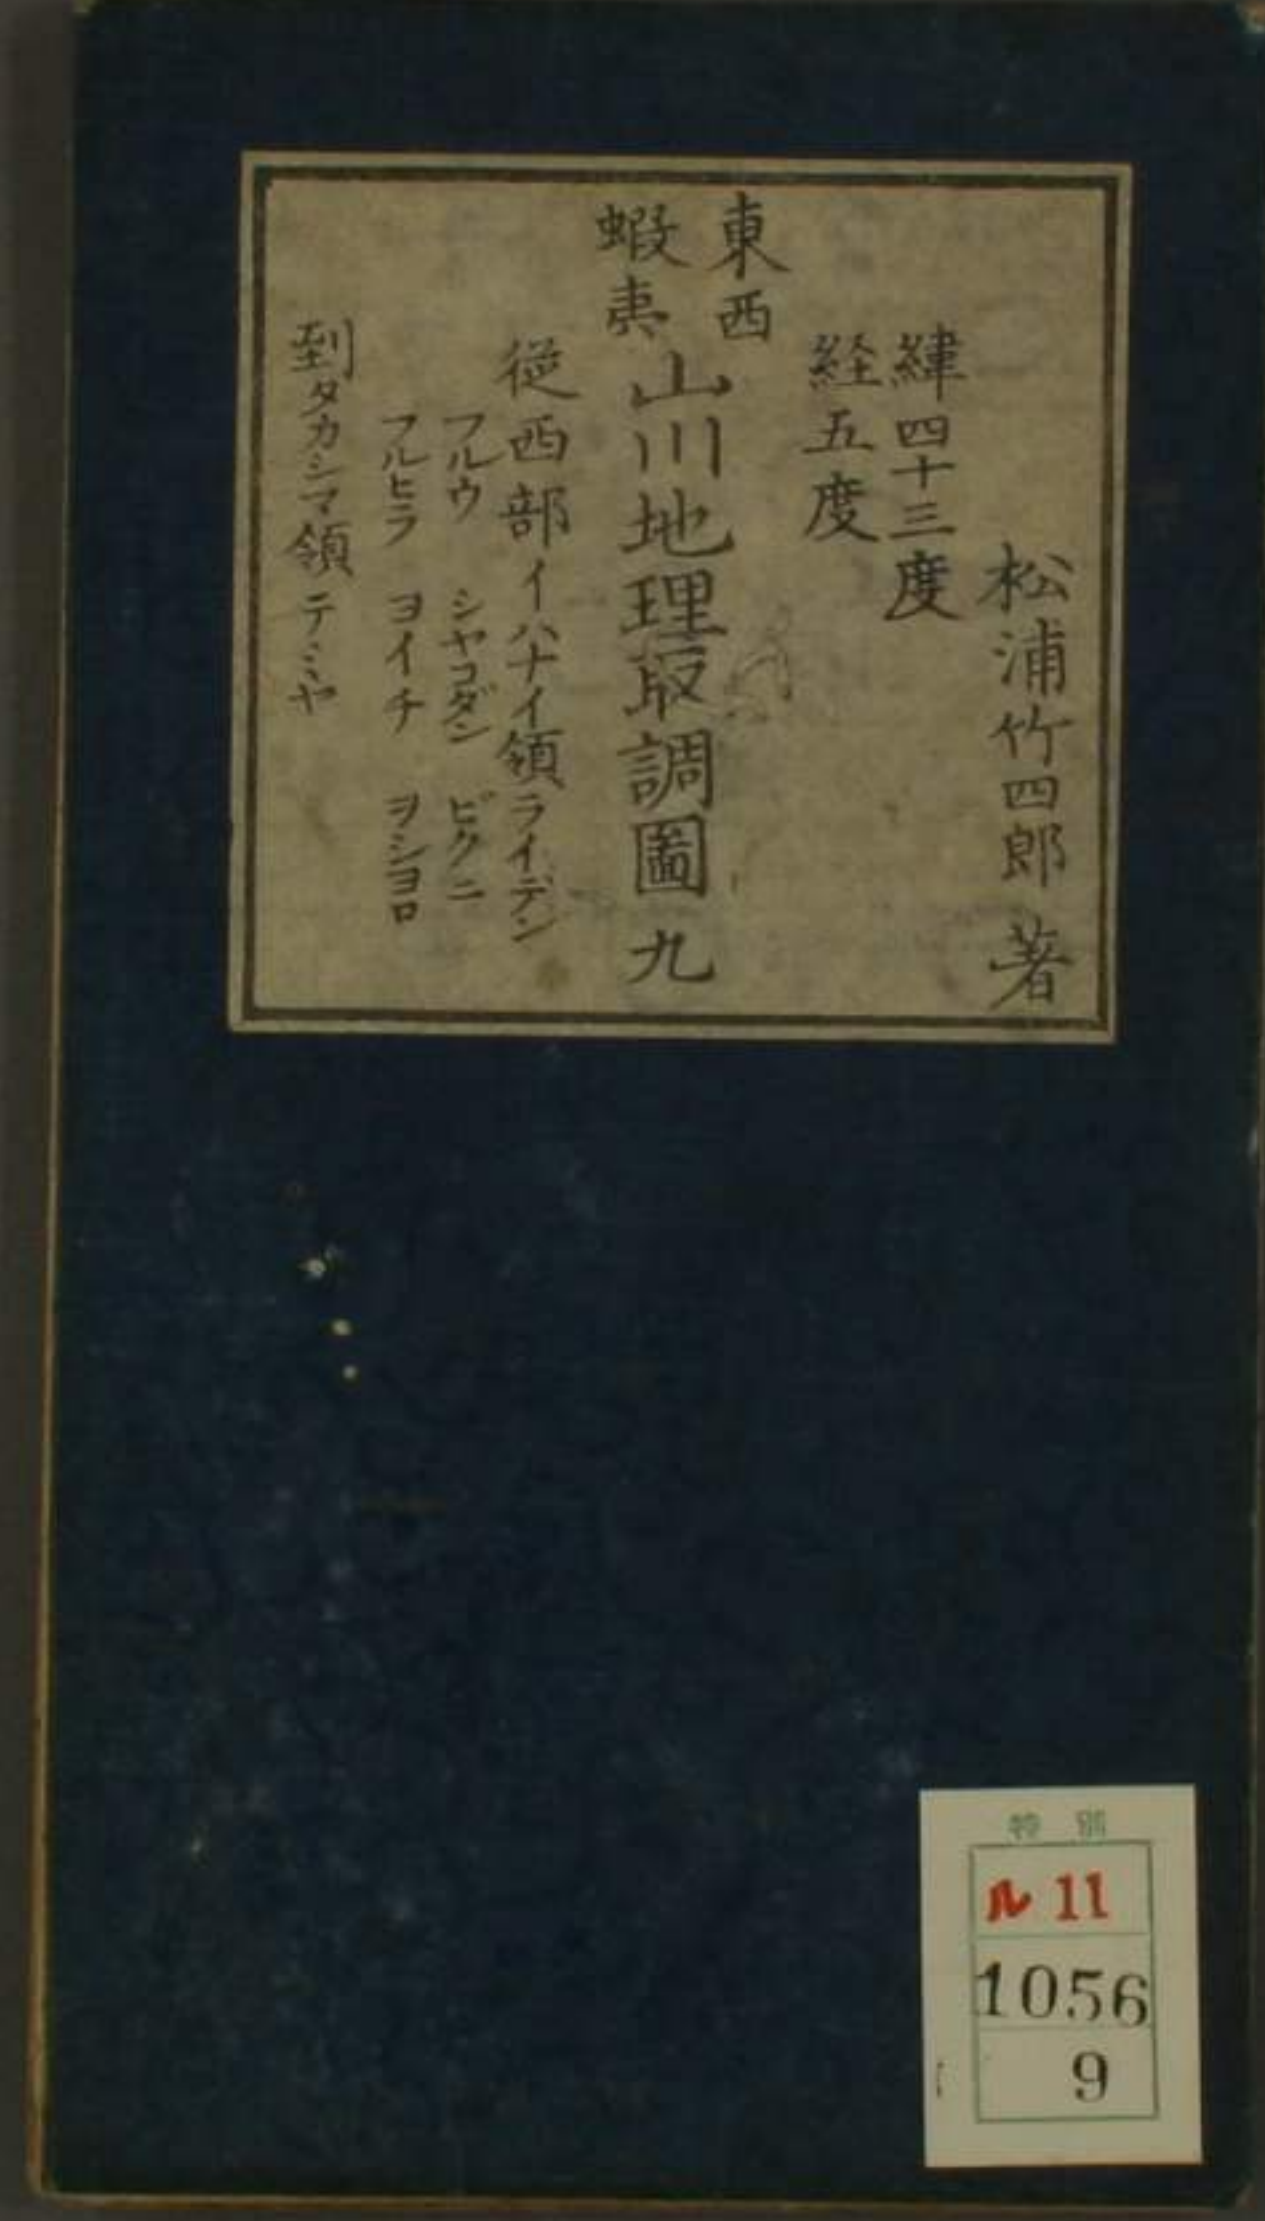 松浦竹四郎 著
緯四十三度
経五度
東西
蝦夷
山川地理取調圖 九
従西部イハナイ領ライデン
フルウ シヤコダン ビクニ
フルヒラ ヨイチ ヲシヨロ
到タカシマ領テミヤ
特別
ル11
1056
9